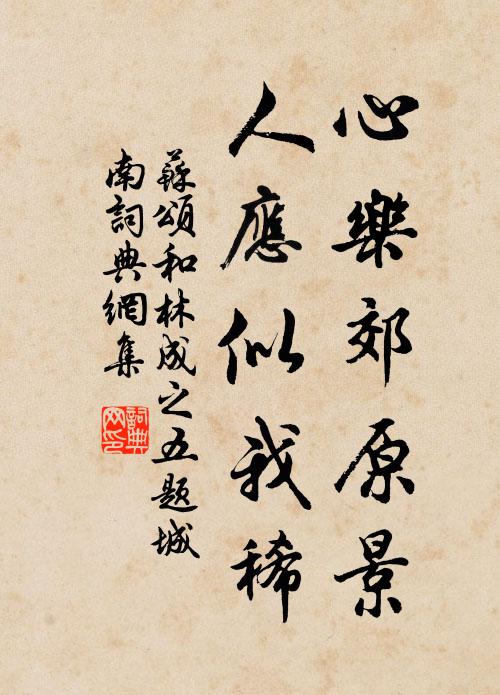 心樂郊原景
人應似我稀
蘇頌和林成之五题城
南詞典網集
詞典
网印